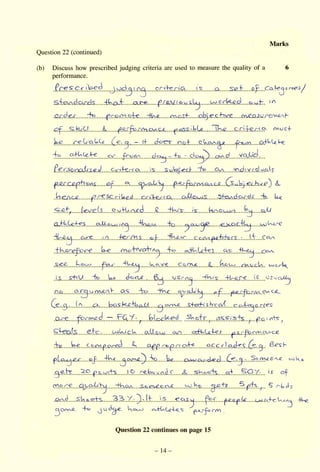 Marks
Question 22 (continued)
(b) Discuss how prescribed judging criteria are used to measure the quality of a performance. 6
Prescribed judging criteria is a set of categories/
standards that are previously worked out in
order to promote the most objective measurement
of skill & performance possible. The criteria must
be reliable (e.g. - it does not change from athlete
to athlete or from day-to-day) and valid.
Personalised criteria is subject to an individuals
perceptions of a quality performance (subjective) &
hence prescribed criteria allows standards to be
set, levels outlined & this is known by all
athletes allowing them to gauge exactly where
they are in terms of their competitors. It can
therefore be motivating to athletes as they can
see how far they have come & how much work
is still to be done. By using this there is usually
no argument as to the quality of performance.
(e.g. In a basketball game statistical categories
are formed - FG%, blocked shots, assists, points,
steals etc. which allow an athletes performance
to be compared & appropriate accolades (e.g. Best
player of the game) to be awarded (e.g. Someone who
gets 20 points 10 rebounds & shoots at 50% is of
more quality than someone who gets 5pts, 5 rbds
and shoots 33%). It is easy for people watching the
game to judge how athletes perform.
Question 22 continues on page 15
– 14 –